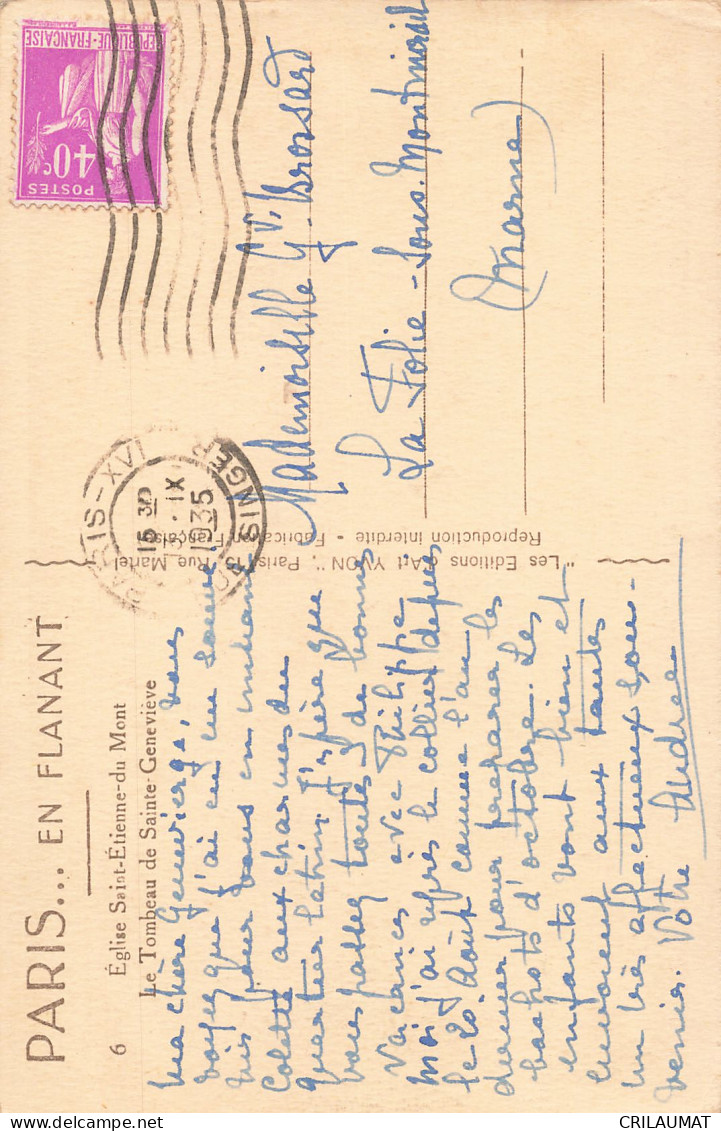 PARIS... EN FLANANT
6 Église Saint-Étienne-du Mont
Le Tombeau de Sainte-Geneviève
Ma chère Geneviève, vous
voyez que j'ai eu un
mis pour vous en
Colette aux charmes du
quartier latin. J'espère que
vous passez toutes 3 de bonnes
vacances avec Philippe
moi j'ai repris le collier depuis
le 20 Août comme l'an
dernier pour préparer les
bachots d'octobre. Les
enfants vont bien et
envoient aux tantes
un très affectueux sou-
venir. Votre Andrée
"Les Editions d'Art YVON", Paris, Rue Martel
Reproduction interdite - Fabrication Française
REPUBLIQUE-FRANÇAISE
40c
POSTES
PARIS-XVI
15 30
IX
1935
SINGER
Mademoiselle Gve. Brossard
La Folie-Sous-Montmirail
(Marne)
CRILAUMAT